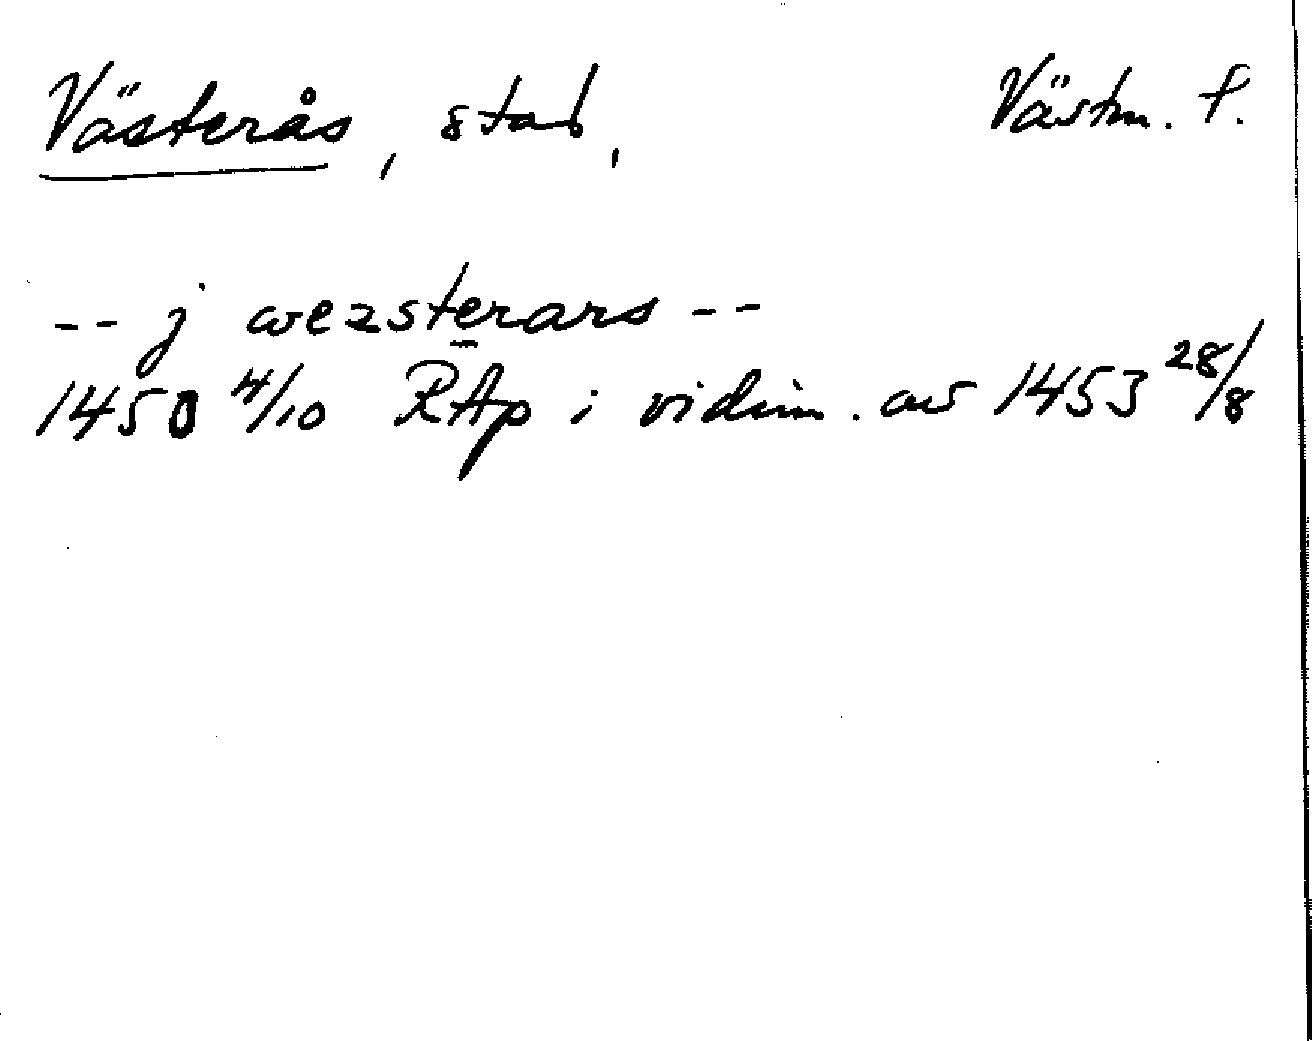 Västerås, stad, Västm. l.
-- j wezsterars --
1450 4/10 RAp i vidim. av 1453 28/8